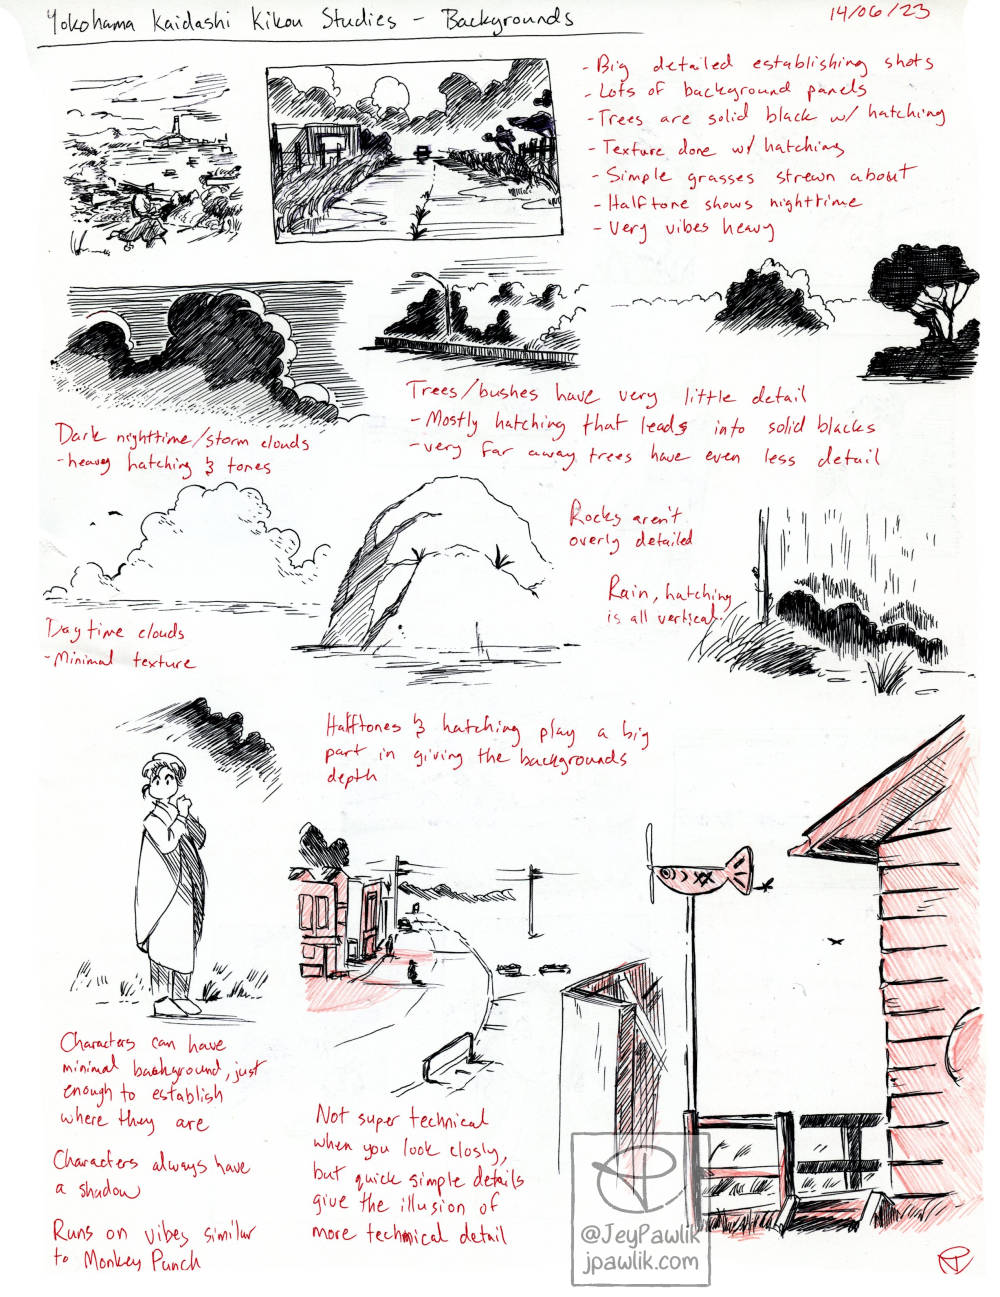 Yokohama Kaidashi Kikou Studies - Backgrounds
14/06/23
- Big detailed establishing shots
- Lots of background panels
- Trees are solid black w/ hatching
- Texture done w/ hatching
- Simple grasses strewn about
- Halftone shows nighttime
- Very vibes heavy
Dark nighttime/storm clouds
- heavy hatching & tones
Trees/bushes have very little detail
- Mostly hatching that leads into solid blacks
- very far away trees have even less detail
Daytime clouds
- Minimal texture
Rocks aren't
overly detailed
Rain, hatching
is all vertical.
Halftones & hatching play a big
part in giving the backgrounds
depth
Characters can have
minimal background, just
enough to establish
where they are
Characters always have
a shadow
Runs on vibes similar
to Monkey Punch
Not super technical
when you look closly,
but quick simple details
give the illusion of
more technical detail
@JeyPawlik
jpawlik.com